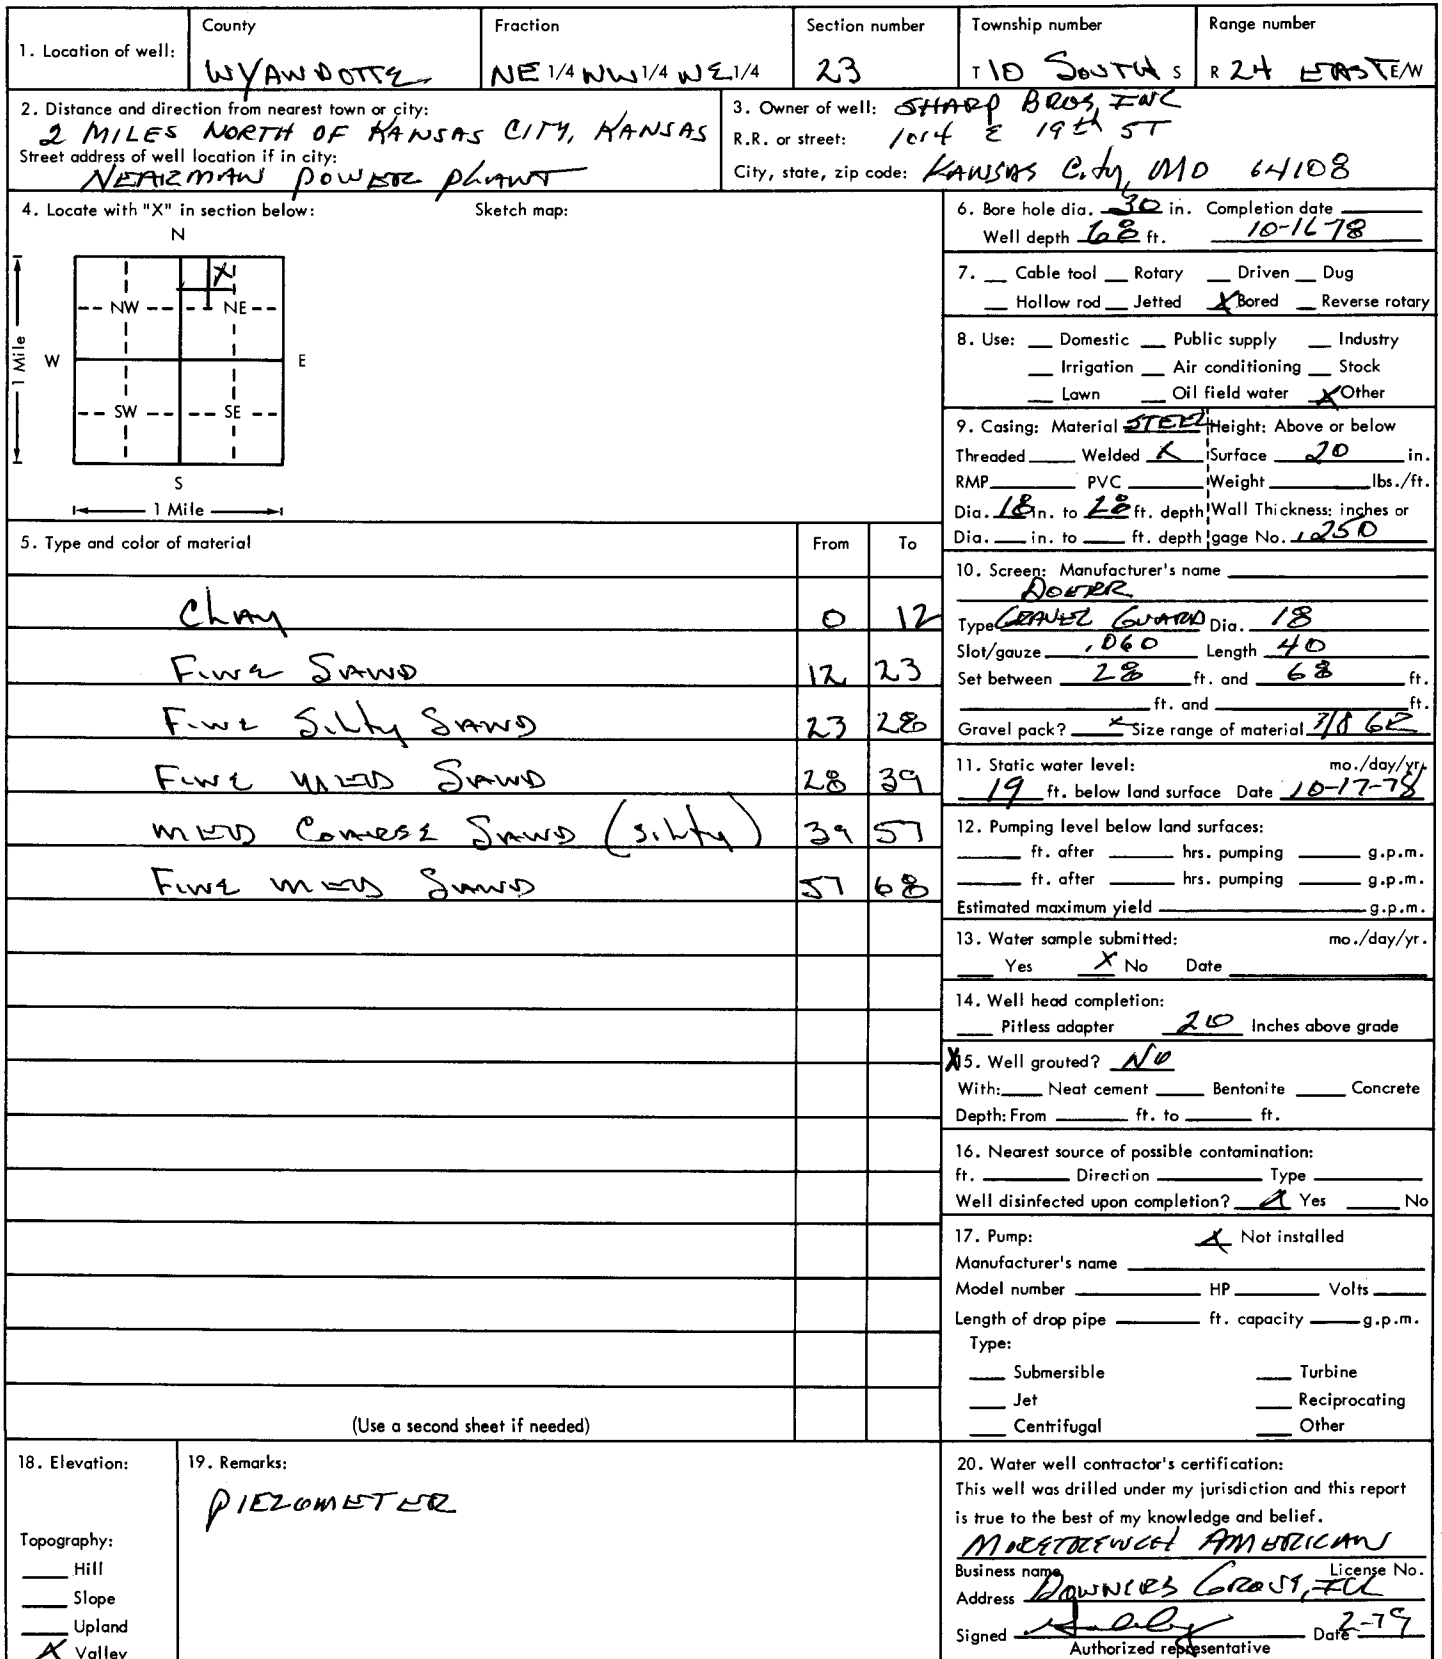 1. Location of well:
County
WYANDOTTE
Fraction
NE 1/4 NW 1/4 NE 1/4
Section number
23
Township number
T 10 SOUTH S
Range number
R 24 EAST E/W
2. Distance and direction from nearest town or city:
2 MILES NORTH OF KANSAS CITY, KANSAS
Street address of well location if in city:
NEARMAN POWER PLANT
3. Owner of well: SHARP BROS, INC
R.R. or street: 1014 E 19th ST
City, state, zip code: KANSAS City, MO 64108
4. Locate with "X" in section below: Sketch map:
N
X
NW NE
W E
1 Mile
SW SE
S
1 Mile
5. Type and color of material From To
Clay 0 12
Fine Sand 12 23
Fine Silty Sand 23 28
Fine MED Sand 28 39
MED Coarse Sand (silty) 39 57
Fine MED Sand 57 68
(Use a second sheet if needed)
6. Bore hole dia. 30 in. Completion date
Well depth 68 ft. 10-16-78
7. Cable tool Rotary Driven Dug
Hollow rod Jetted X Bored Reverse rotary
8. Use: Domestic Public supply Industry
Irrigation Air conditioning Stock
Lawn Oil field water X Other
9. Casing: Material STEEL Height: Above or below
Threaded Welded X Surface 20 in.
RMP PVC Weight lbs./ft.
Dia. 18 in. to 28 ft. depth Wall Thickness: inches or
Dia. in. to ft. depth gage No. .250
10. Screen: Manufacturer's name
DOERR
Type GRAVEL GUARD Dia. 18
Slot/gauze .060 Length 40
Set between 28 ft. and 68 ft.
ft. and ft.
Gravel pack? X Size range of material 3/8
11. Static water level: mo./day/yr.
19 ft. below land surface Date 10-17-78
12. Pumping level below land surfaces:
ft. after hrs. pumping g.p.m.
ft. after hrs. pumping g.p.m.
Estimated maximum yield g.p.m.
13. Water sample submitted: mo./day/yr.
Yes X No Date
14. Well head completion:
Pitless adapter 20 Inches above grade
X15. Well grouted? NO
With: Neat cement Bentonite Concrete
Depth: From ft. to ft.
16. Nearest source of possible contamination:
ft. Direction Type
Well disinfected upon completion? X Yes No
17. Pump: X Not installed
Manufacturer's name
Model number HP Volts
Length of drop pipe ft. capacity g.p.m.
Type:
Submersible Turbine
Jet Reciprocating
Centrifugal Other
18. Elevation:
Topography:
Hill
Slope
Upland
X Valley
19. Remarks:
PIEZOMETER
20. Water well contractor's certification:
This well was drilled under my jurisdiction and this report
is true to the best of my knowledge and belief.
MORETRENCH AMERICAN
Business name License No.
Address DOWNERS GROVE, ILL
Signed Date 2-79
Authorized representative